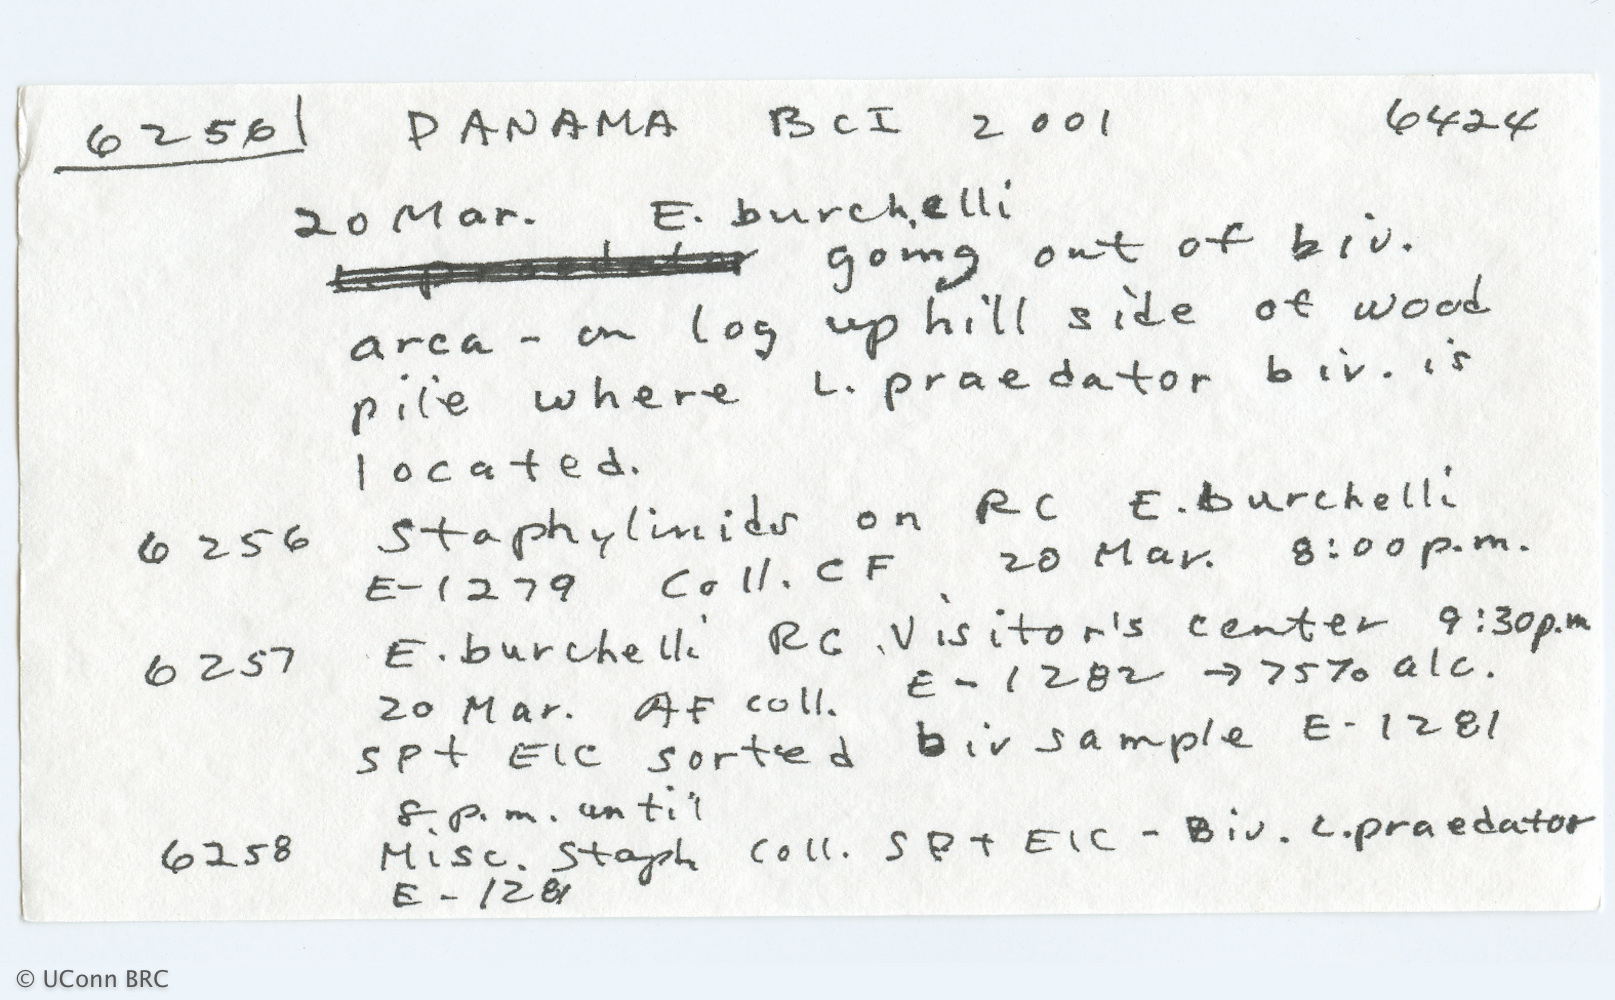 6256 PANAMA BCI 2001 6424
20 Mar. E. burchelli
L. praedator going out of biv.
area - on log uphill side of wood
pile where L. praedator biv. is
located.
6256 Staphylinids on RC E. burchelli
E-1279 Coll. CF 20 Mar. 8:00 p.m.
6257 E. burchelli RC. Visitor's center 9:30 p.m
20 Mar. AF coll. E-1282 → 75% alc.
SP+ EIC sorted biv sample E-1281
8 p.m. until
6258 Misc. Staph coll. SP+ EIC - Biv. L. praedator
E-1281
© UConn BRC